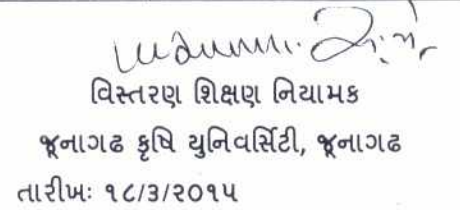 વિસ્તરણ શિક્ષણ નિયામક
જૂનાગઢ કૃષિ યુનિવર્સિટી, જૂનાગઢ
તારીખઃ ૧૮/૩/૨૦૧૫